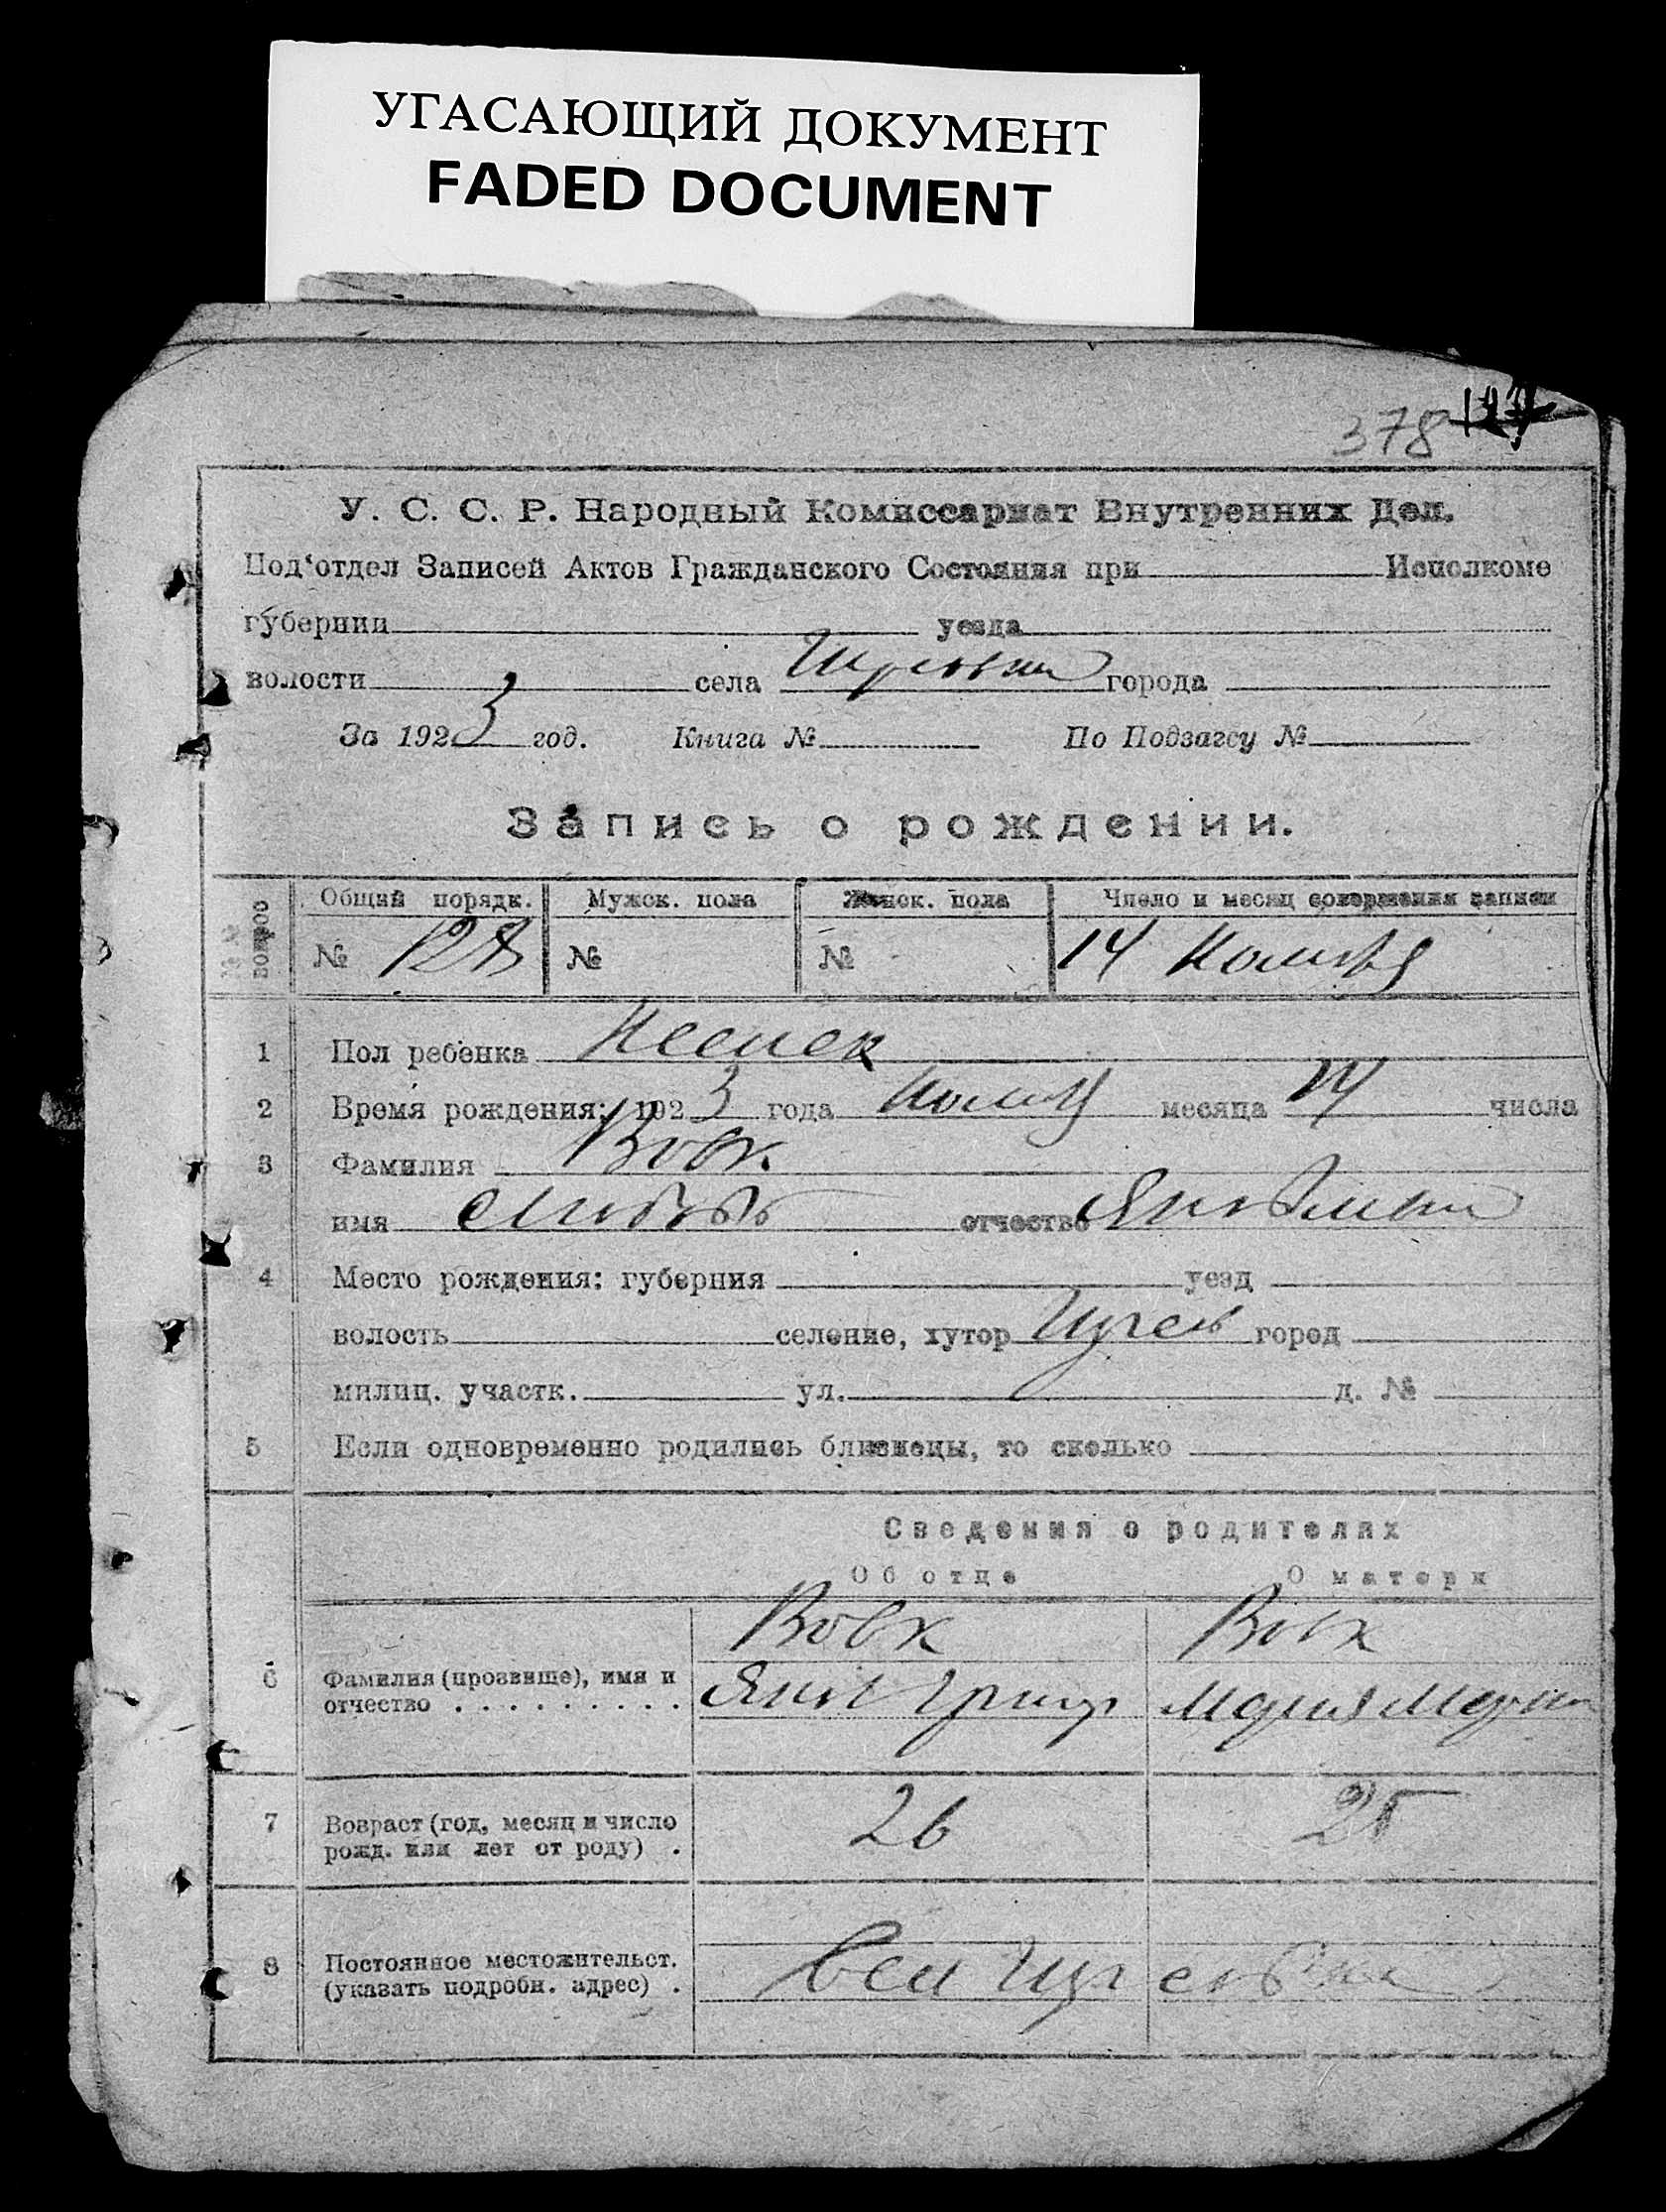 УГАСАЮЩИЙ ДОКУМЕНТ
FADED DOCUMENT
378
У. С. С. Р. Народный Комиссариат Внутренних Дел.
Под‘отдел Записей Актов Гражданского Состояния при Исполкоме
губернии уезда
волости села города
За 1923 год. Книга № По Подзагсу №
Запись о рождении.
вопрос Общий порядк. Мужск. пола Женск. пола Число и месяц совершения записи
№ № № 14
1 Пол ребенка
2 Время рождения: 1923 года месяца 14 числа
3 Фамилия Вовк
имя Любовь отчество
4 Место рождения: губерния уезд
волость селение, хутор город
милиц. участк. ул. д. №
5 Если одновременно родились близнецы, то сколько
Сведения о родителях
Об отце О матери
Вовк Вовк
6 Фамилия (прозвище), имя и
отчество Яков Григор Мария
7 Возраст (год, месяц и число
рожд. или лет от роду) 26 25
8 Постоянное местожительст.
(указать подробн. адрес)